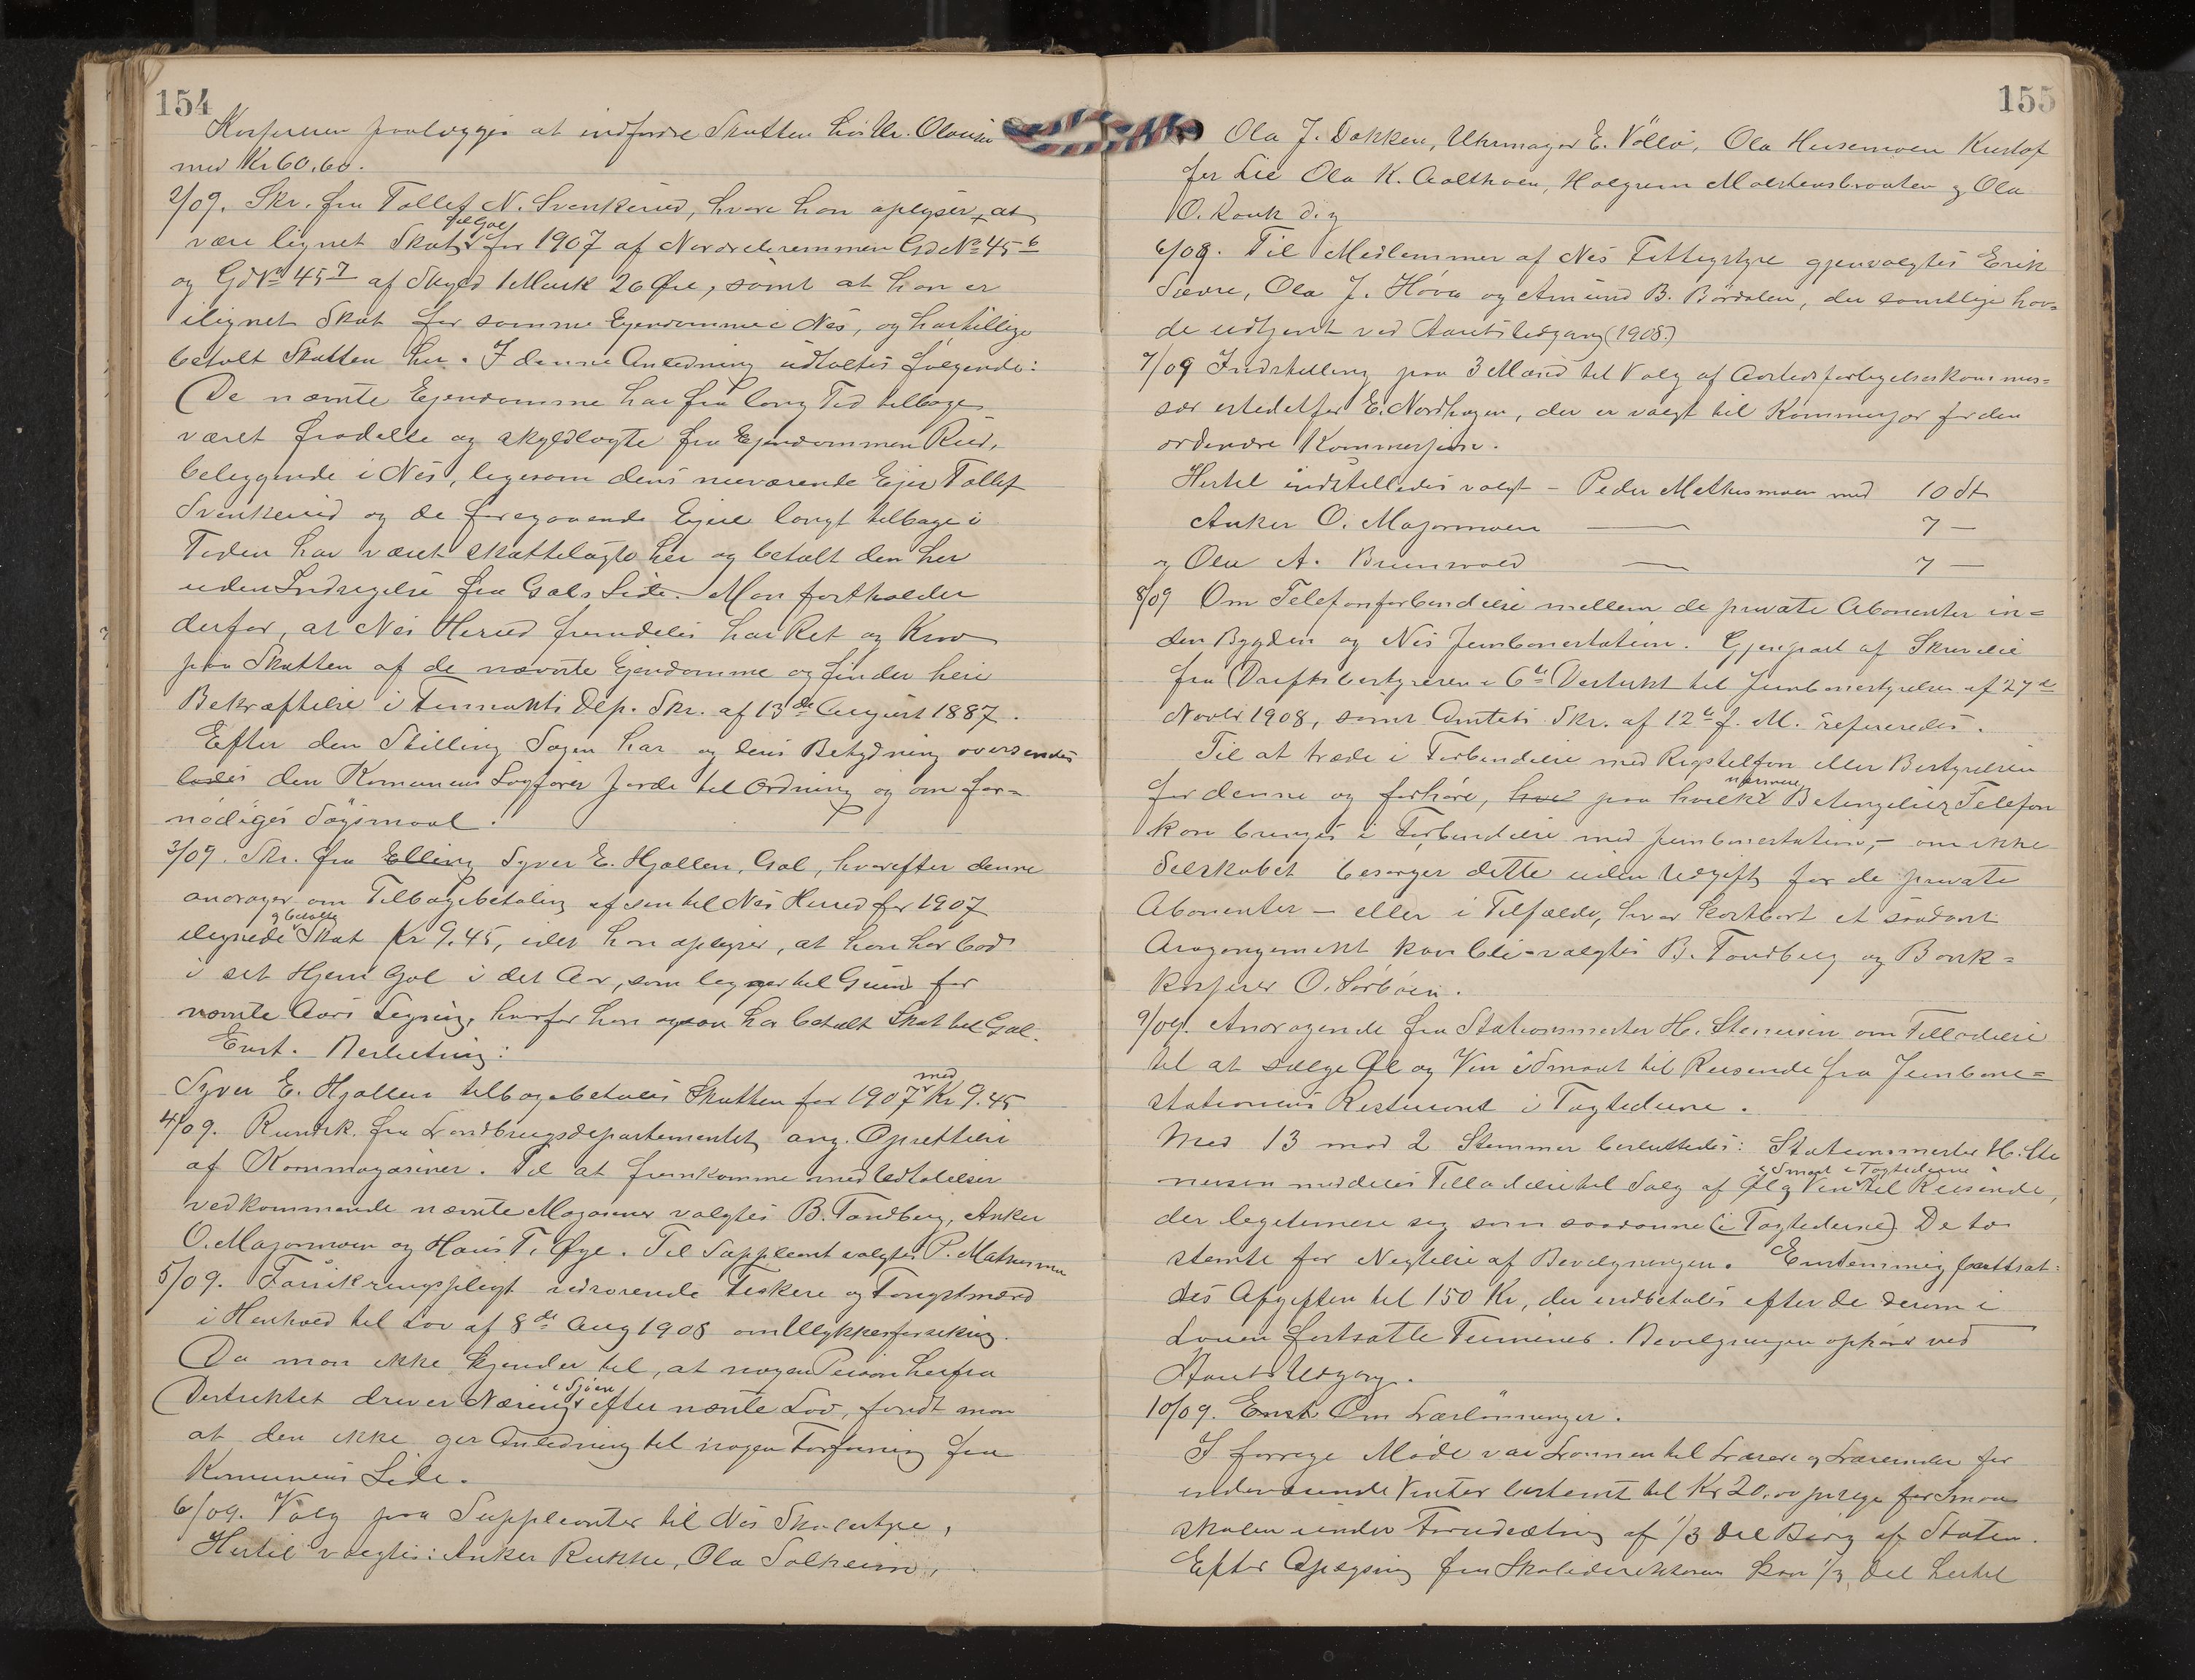 154
Kasserern paalægges at indfordre Skatten hos Hr. Olausen
med Kr 60.60.
2/09. Skr. fra Tollef N. Svenkerud, hvori han oplyser, at
være lignet Skat til Gol for 1907 af Nordre Gd No 45-6
og Gd No 45-7 af Skyld Mark 26 Øre, samt at han er
ilignet Skat for samme Eiendomme i Nes, og har tillige
betalt Skatten her. I denne Anledning udtaltes følgende:
De nævnte Ejendomme har fra lang Tid tilbage
været fradelte og skyldlagte fra Ejendommen Rud,
beliggende i Nes, ligesom dens nuværende Ejer Tollef
Svenkerud og de foregaaende Ejere langt tilbage i
Tiden har været skattelagte her og betalt den her
uden Indsigelse fra Gols Side. Man fastholder
derfor, at Nes Herred fremdeles har Ret og Krav
paa Skatten af de nævnte Ejendomme og finder heri
Bekræftelse i Dep. Skr. af 13de August 1887.
Efter den Stilling Sagen har og dens Betydning oversendes
den Komunens Sagfører Jorde til Ordning og om for-
nødiges Søgsmaal.
3/09. Skr. fra Elling Syver E. Hjallen, Gol, hvorefter denne
andrager om Tilbagebetaling af sin til Nes Herred for 1907
ilignede og betalte Skat Kr 9.45, idet han oplyser, at han har bod
i set Hjem Gol i det Aar, som ligger til Grund for
nævnte Aars Ligning, hvorfor han ogsaa har betalt Skat til Gol.
Enst. Beslutning:
Syver E. Hjallen tilbagebetales Skatten for 1907 med Kr 9.45
4/09. Rundsk. fra Landbrugsdepartementet ang. Oprettelse
af Kornmagasiner. Til at fremkomme med Udtalelser
vedkommende nævnte Magasiner valgtes B. Tandberg, Anker
O. Majormoen og Hans T. Øye. Til Suppleant valgtes P. Mathismoen
5/09. Forsikringspligt vedrørende Fiskere og Fangstmænd
i Henhold til Lov af 8de Aug 1908 om Ulykkesforsikring.
Da man ikke kjender til, at nogen Person herfra
Distriktet driver Næring i Sjøen efter nævnte Lov, fandt man
at den ikke gir Anledning til nogen Forføining fra
Komunens Side.
6/09. Valg paa Suppleanter til Nes Skolestyre,
Hertil valgtes: Anker Rukke, Ola Solheim,
155
Ola J. Dokken, Uhrmager E. Vøllo, Ola Husemoen Kristof
fer Lie Ola K. Aalthoen, Halgrim Mortensbraaten og Ola
O. Rauk d. y
6/09. Til Medlemmer af Nes Fattigstyre gjenvalgtes Erik
Sævre, Ola J. Hóva og Amund B. Bórdalen, der samtlige hav-
de udtjent ved Aarets Udgang (1908)
7/09 Indstilling paa 3 Mænd til Valg af Aastedsforligelseskommis-
sær istedetfor E. Nordhagen, der er valgt til Kommisjær for den
ordinære Kommisjon.
Hertil indstilledes valgt - Peder Mathismoen med 10 St
Anker O. Majormoen — 7 —
og Ola A. Brunvold — 7 —
8/09 Om Telefonforbindelse mellem de private Abonenter in-
den Bygden og Nes Jernbanestation. Gjenpart af Skrivelse
fra Driftsbestyreren i 6te Distrikt til Jernbanestyrelsen af 27de
Novbr 1908, samt Amtets Skr. af 12te f. M. refereredes.
Til at træde i Forbindelse med Rigstelfon eller Bestyrelsen
for denne og forhøre, paa hvilke nærmere Betingelser Telefon
kan bringes i Forbindelse med Jernbanestation, – om ikke
Selskabet besørger dette uden Udgift for de private
Abonenter – eller i Tilfælde, hvor kostbart et saadant
Arrangement kan bli – valgtes B. Tandberg og Bank-
kasserer O. Sørbøen.
9/09. Andragende fra Stationsmester H. Stenersen om Tilladelse
til at sælge Øl og Vin i Smaat til Reisende fra Jernbane-
stationens Restaurant i Togtiderne.
Med 13 mod 2 Stemmer besluttedes: Stationsmester H. Ste
nersen meddeles Tilladelse til Salg af Øl og Vin i Smaat i Togtiderne til Reisende,
der legitimere sig som saadanne (i Togtiderne) De to
stemte for Negtelse af Bevilgningen. Enstemmig fastsat-
tes Afgiften til 150 Kr, der indbetales efter de derom i
Loven fastsatte Terminer. Bevilgningen ophører ved
Aarets Udgang.
10/09. Enst Om Lærlønninger.
I forrige Møde var Lønnen til Lærere og Lærerinder for
indeværende Vinter bestemt til Kr 20.00 pr Uge for Smaa
skolen under Forudsætning af 1/3 Del Bidrag af Staten.
Efter Oplysning fra Skoledirektøren kan 1/3 Del hertil